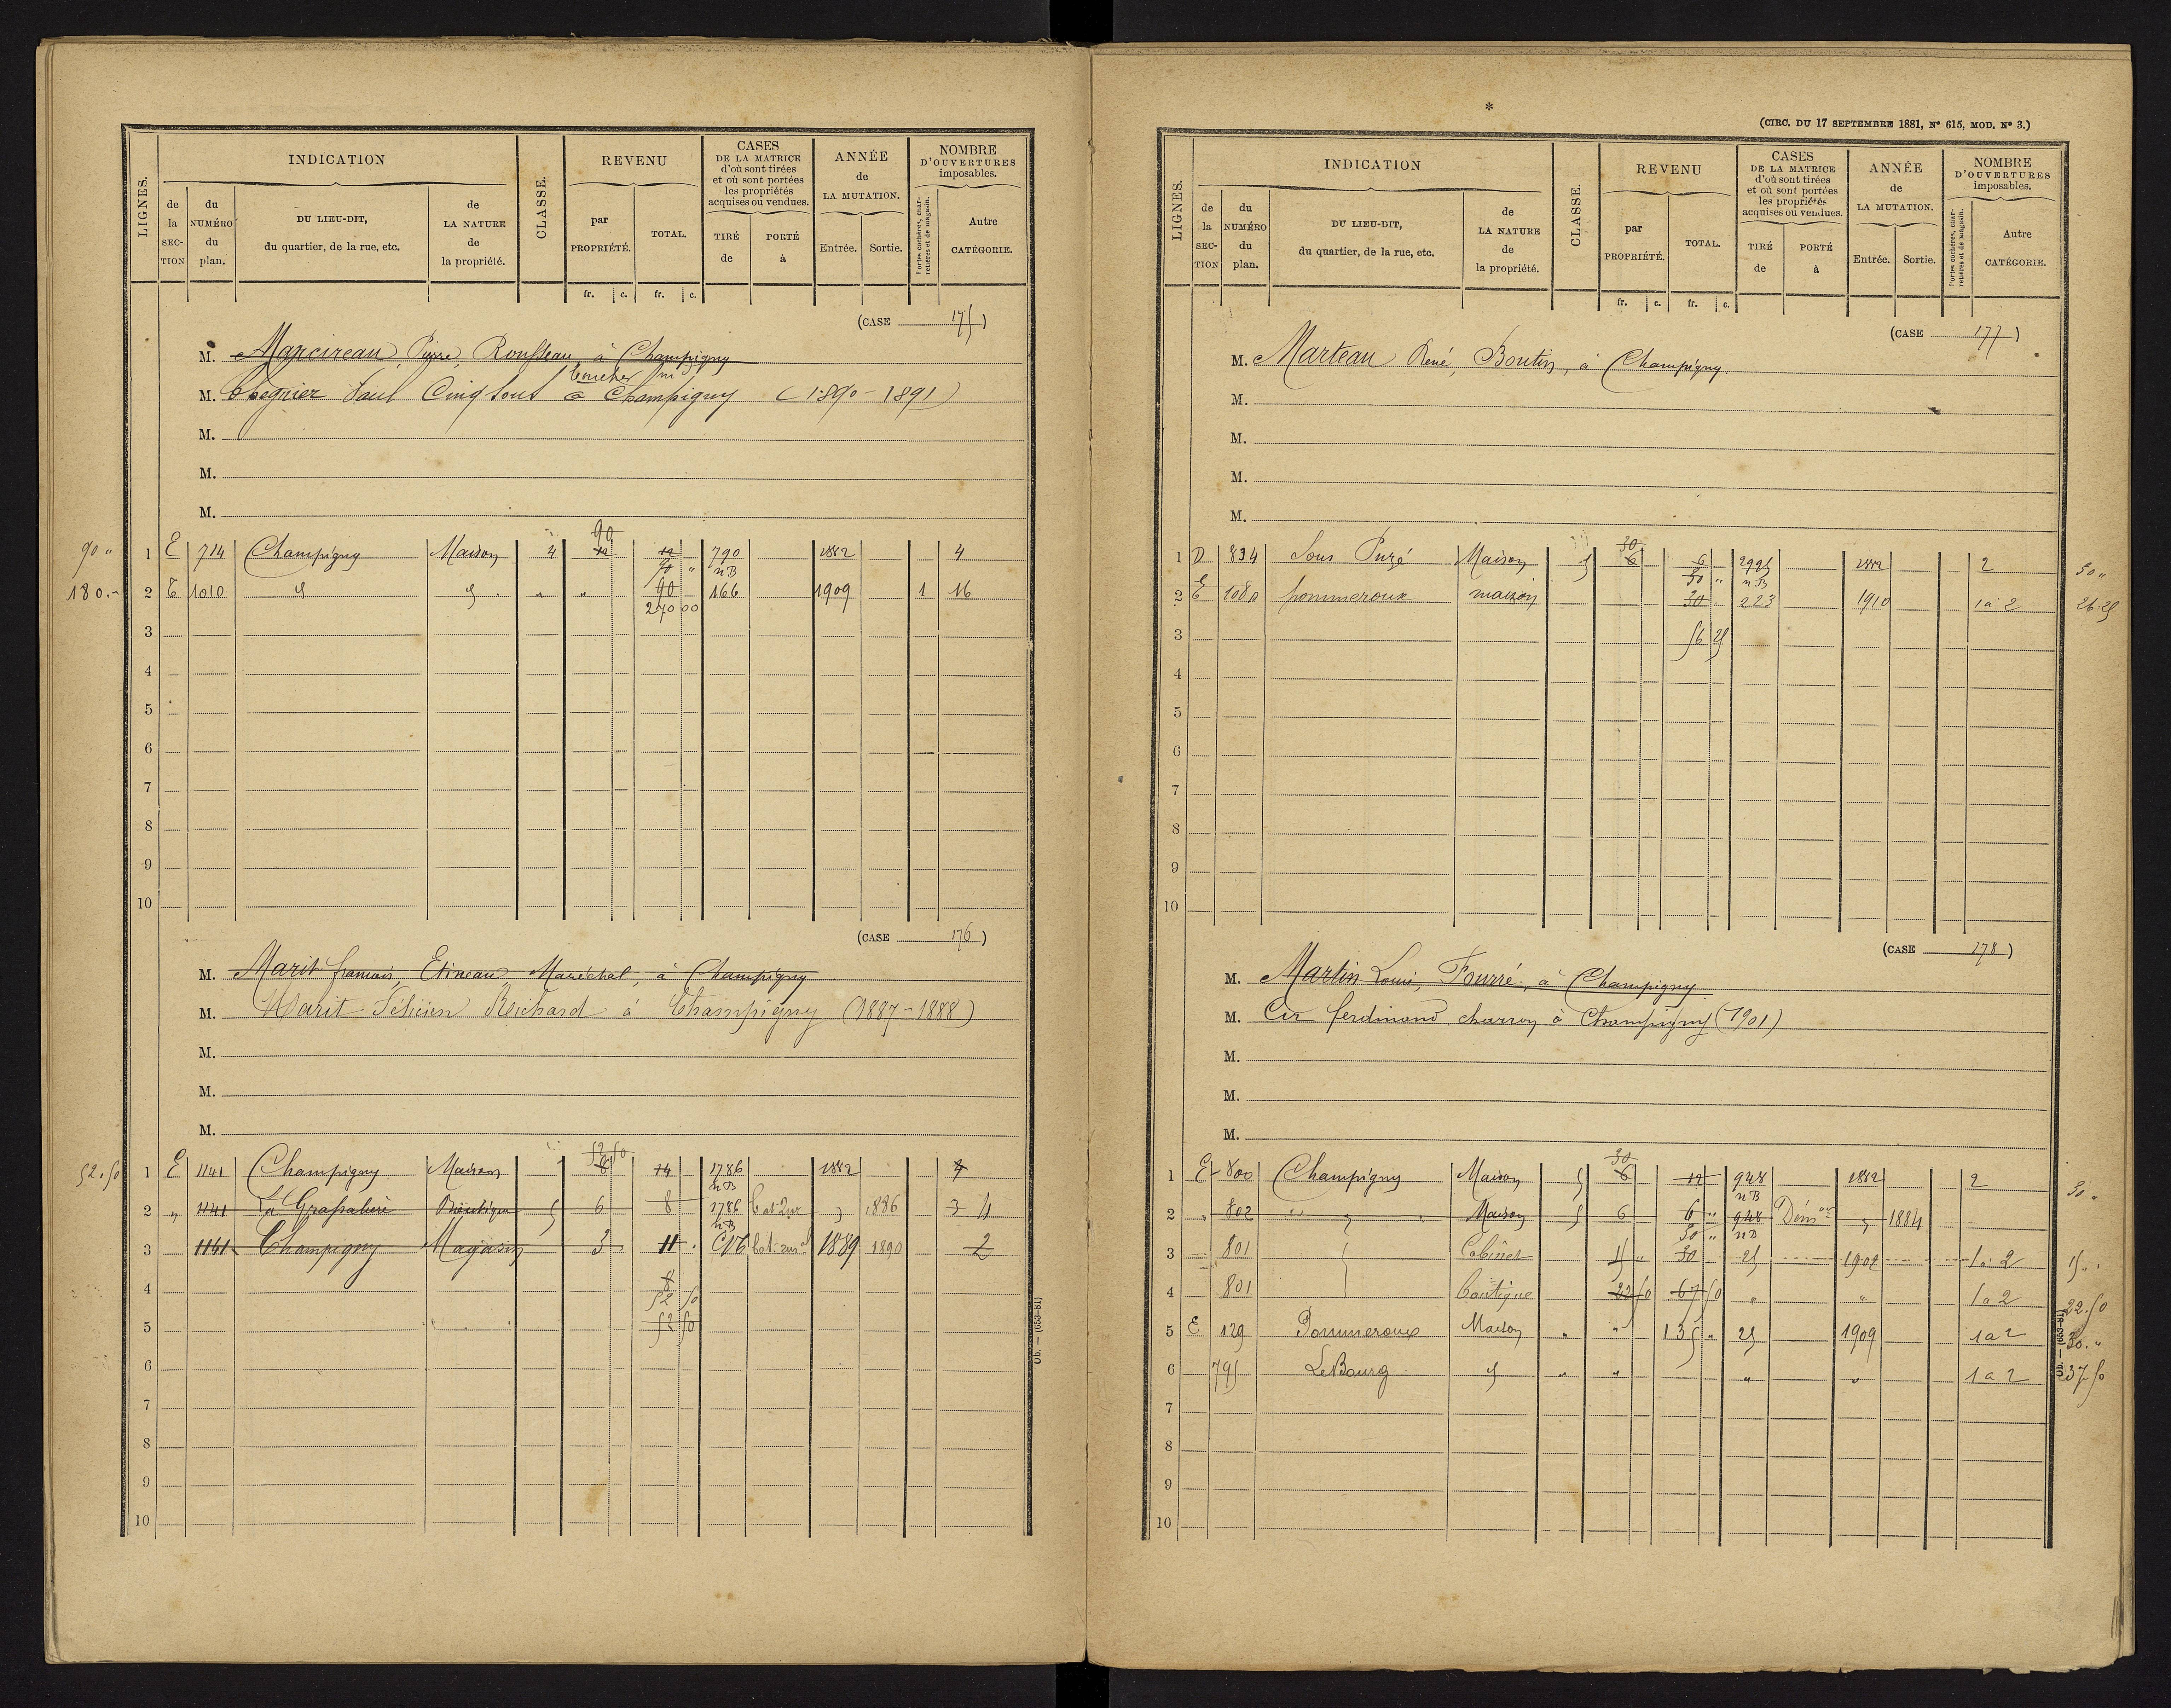 LIGNES.
INDICATION
de la SECTION
du NUMÉRO du plan.
DU LIEU-DIT, du quartier, de la rue, etc.
de LA NATURE de la propriété.
CLASSE.
REVENU
par PROPRIÉTÉ.
TOTAL.
fr. c. fr. c.
CASES DE LA MATRICE d'où sont tirées et où sont portées les propriétés acquises ou vendues.
TIRÉ de
PORTÉ à
ANNÉE de LA MUTATION.
Entrée. Sortie.
NOMBRE D'OUVERTURES imposables.
Portes cochères, charretières et de magasin.
Autre CATÉGORIE.
(CASE 175)
M. Marcireau, Pierre, Rousseau, à Champigny
boucher
M. Paul Cinq sous à Champigny (1890-1891)
M.
M.
M.
90
90 " 1 E 714 Champigny Maison 4 12 12 790 1882 4
90 " n B
180.- 2 E 1010 d d " " 90 166 1909 1 16
270 00
3
4
5
6
7
8
9
10
(CASE 176)
M. Marit françois, Etineau Maréchal, à Champigny
M. Marit Félicien Reichard à Champigny (1887-1888)
M.
M.
M.
52 50
52.50 1 E 1141 Champigny Maison 8 14 1786 1882 4
n B
2 " 1141 Boutique 5 6 8 1786 1886 3 4
n B
3 1141 Champigny Magasin 3 11 1889 1890 2
4 8
52 50
5 52 50
6
7
8
9
10
Ob. — (653-81)
*
(CIRC. DU 17 SEPTEMBRE 1881, N° 615, MOD. N° 3.)
LIGNES.
INDICATION
de la SECTION
du NUMÉRO du plan.
DU LIEU-DIT, du quartier, de la rue, etc.
de LA NATURE de la propriété.
CLASSE.
REVENU
par PROPRIÉTÉ.
TOTAL.
fr. c. fr. c.
CASES DE LA MATRICE d'où sont tirées et où sont portées les propriétés acquises ou vendues.
TIRÉ de
PORTÉ à
ANNÉE de LA MUTATION.
Entrée. Sortie.
NOMBRE D'OUVERTURES imposables.
Portes cochères, charretières et de magasin.
Autre CATÉGORIE.
(CASE 177)
M. Marteau René, Boutin, à Champigny.
M.
M.
M.
M.
30
1 D 834 Sous Puzé Maison 5 6 6 2995 1882 2 30 "
30 " n B
2 E 1080 pommeroux maison 30 223 1910 1 à 2 26.25
3 56 25
4
5
6
7
8
9
10
(CASE 178)
M. Martin Louis, Fourré, à Champigny
M. Cir ferdinand charron à Champigny (1901)
M.
M.
M.
30
1 E 800 Champigny Maison 5 6 12 948 1882 2 30 "
n B
2 " 802 " " Maison 5 6 6 " 948 Dém on 1884
30 " n B
3 801 Cabinet 15 " 30 25 1902 1 à 2 15 "
4 801 boutique 22 50 67 50 " " 1 à 2 22.50
5 E 129 Pommeroux Maison " " 135 " 25 1909 1 à 2 30. "
6 795 Le Bourg d " " " " 1 à 2 37 50
7
8
9
10
Ob. — (653-81)